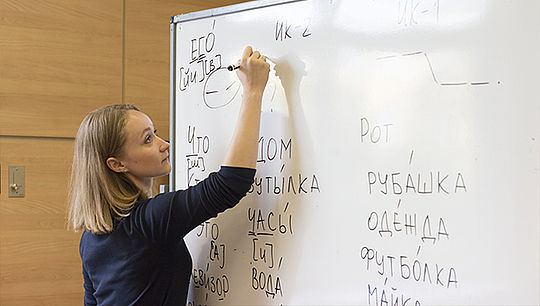 ЕГО́
[йи][в]
ИК-2
ИК-1
ЧТО
[ш]
ДОМ
БУТЫ́ЛКА
ЧАСЫ́
[и]
[А]
ВОДА́
РОТ
РУБА́ШКА
ОДЕ́ЖДА
ФУТБО́ЛКА
МА́ЙКА